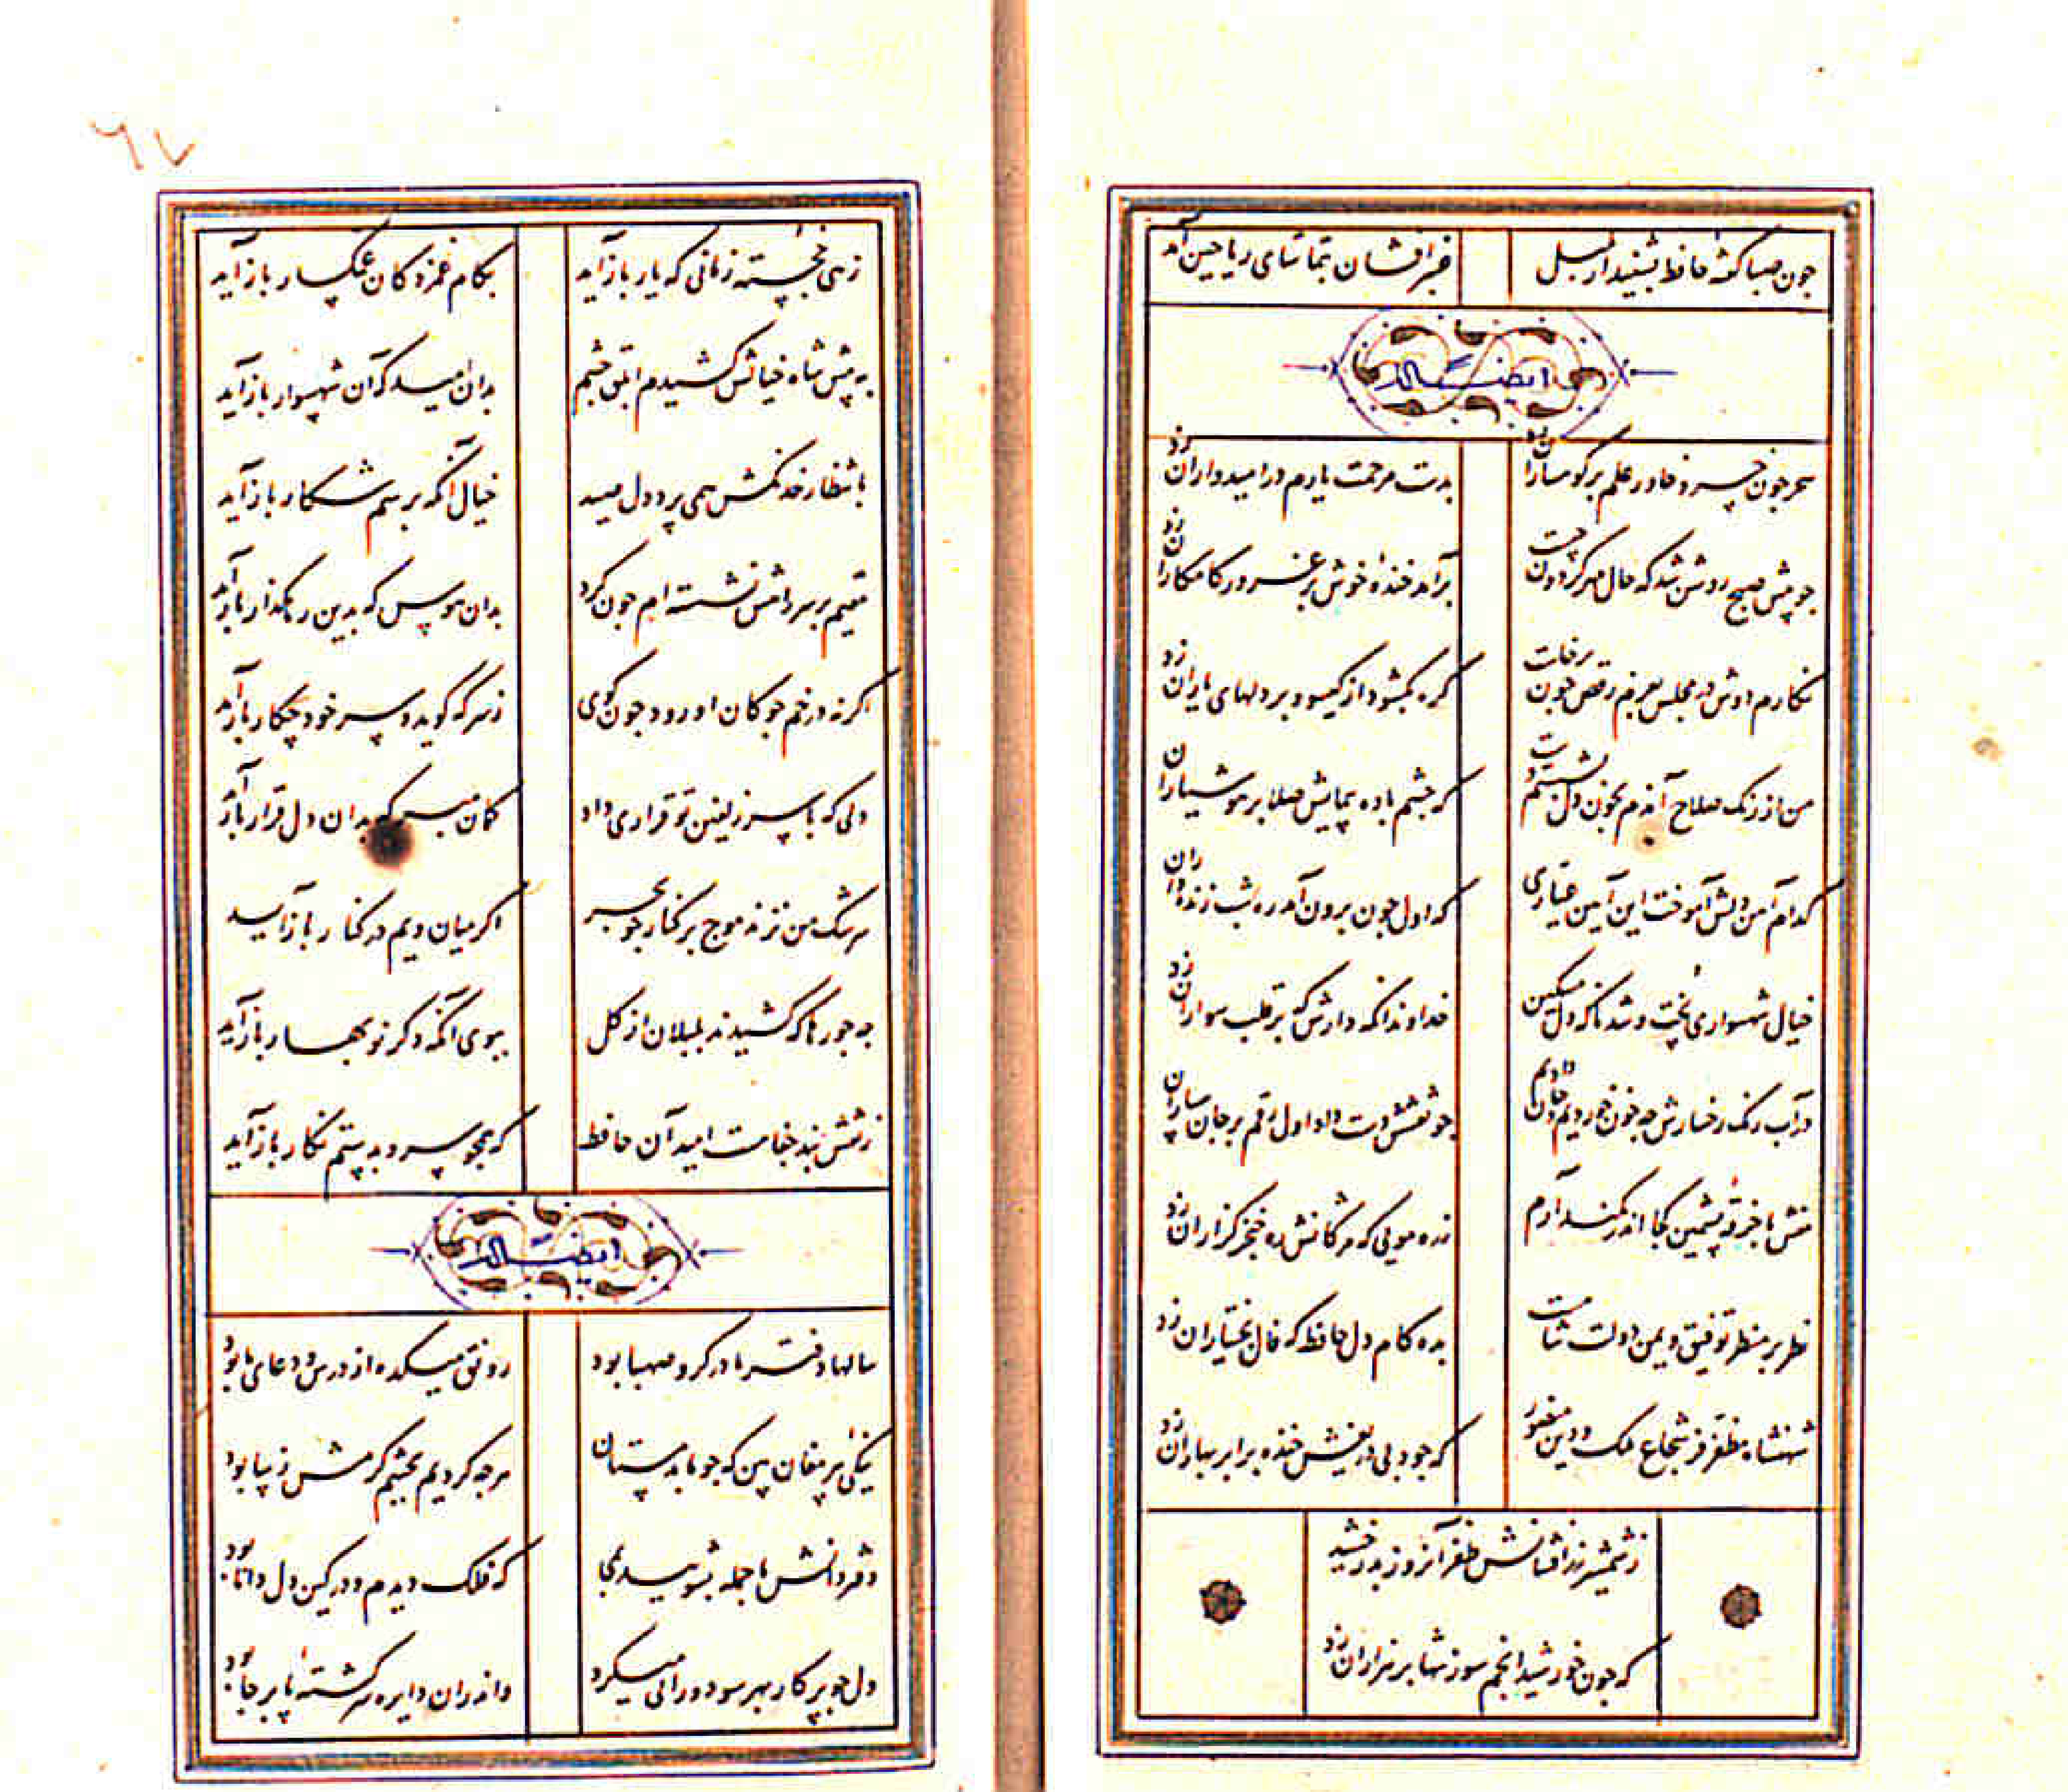 چون صبا گفته حافظ بشنید از بلبل
عنبر افشان بتماشای ریاحین آمد
ایضاً له
سحر چون خسرو خاور علم بر کوهساران زد
بدست مرحمت یارم در امیدواران زد
چو پیش صبح روشن شد که حال مهر گردون چیست
برآمد خنده خوش بر غرور کامکاران زد
نکارم دوش در مجلس بعزم رقص چون برخاست
کره بکشود از کیسو و بر دلهای یاران زد
من از رنک صلاح آندم بخون دل بشستم دست
که چشم باده پیمایش صلا بر هوشیاران
کدام آهن دلش آموخت این آیین عیاری
که اول چون برون آمد ره شب زنده داران
خیال شهسواری پخت و شد ناکه دل مسکین
خداوندا نکه دارش که بر قلب سواران زد
در آب رنک رخسارش چه خون خوردیم و جان دادیم
چو نقشش دست داد اول رقم بر جان سپاران
منش با خرقه پشمین کجا اندر کمند آرم
زره مویی که مژکانش ره خنجر کزاران زد
نظر بر منظر توفیق و یمن دولت شاست
بده کام دل حافظ که فال بختیاران زد
شهنشاه مظفر فر شجاع ملک و دین منصور
که جود بی دریغش خنده بر ابر بهاران زد
ز شمشیر زرافشانش ظفر آنروز بدرخشید
که چون خورشید انجم سوز تنها بر هزاران زد
۶۷
زهی خجسته زمانی که یار باز آید
بکام غمزدکان غمکسار باز آید
به پیش شاه خیالش کشیدم ابلق چشم
بدان امید که آن شهسوار باز آید
بانتظار خدنکش همی پرد دل صید
خیال آنکه برسم شکار باز آید
مقیم بر سر راهش نشسته ام چون کرد
بدان هوس که بدین رهکذار باز آید
اکر نه در خم چوکان او رود چون کوی
ز سر که کوید و سر خود چکار باز آید
دلی که با سر زلفین تو قراری داد
کمان مبر که بدان دل قرار باز آید
سرشک من نزند موج بر کنار چو بحر
اکر میان ویم در کنار باز آید
چه جورها که کشیدند بلبلان از کل
ببوی آنکه دکر نوبهار باز آید
ز نقش بند قضا هست امید آن حافظ
که همچو سرو به دستم نکار باز آید
ایضاً له
سالها دفتر ما در کرو صهبا بود
رونق میکده از درس و دعای ما بود
نیکی پیر مغان بین که چو ما بدمستان
هرچه کردیم بچشم کرمش زیبا بود
دفتر دانش ما جمله بشویید بمی
که فلک دیدم و در کین دل دانا بود
دل چو پرکار بهر سو دورانی میکرد
و اندران دایره سرکشته پا بر جا بود